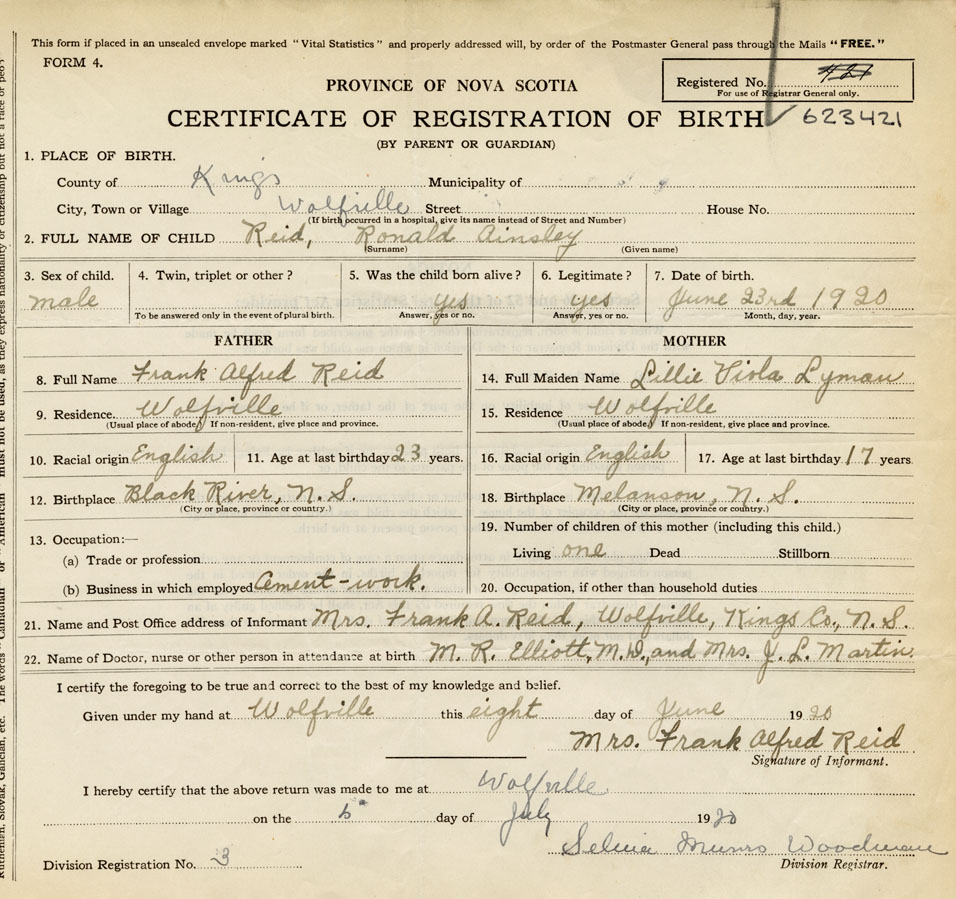 This form if placed in an unsealed envelope marked "Vital Statistics" and properly addressed will, by order of the Postmaster General pass through the Mails "FREE."
FORM 4.
PROVINCE OF NOVA SCOTIA
Registered No.
For use of Registrar General only.
CERTIFICATE OF REGISTRATION OF BIRTH ✓ 623421
(BY PARENT OR GUARDIAN)
1. PLACE OF BIRTH.
County of Kings Municipality of
City, Town or Village Wolfville Street House No.
(If birth occurred in a hospital, give its name instead of Street and Number)
2. FULL NAME OF CHILD Reid, Ronald Ainsley
(Surname) (Given name)
3. Sex of child. 4. Twin, triplet or other? 5. Was the child born alive? 6. Legitimate? 7. Date of birth.
male yes yes June 23rd 1920
To be answered only in the event of plural birth. Answer, yes or no. Answer, yes or no. Month, day, year.
FATHER
8. Full Name Frank Alfred Reid
9. Residence. Wolfville
(Usual place of abode) If non-resident, give place and province.
10. Racial origin English 11. Age at last birthday 23 years.
12. Birthplace Black River, N. S.
(City or place, province or country.)
13. Occupation:—
(a) Trade or profession
(b) Business in which employed Cement-work.
MOTHER
14. Full Maiden Name Lillie Viola Lyman
15. Residence Wolfville
(Usual place of abode) If non-resident, give place and province.
16. Racial origin English 17. Age at last birthday 17 years
18. Birthplace Melanson, N. S.
(City or place, province or country.)
19. Number of children of this mother (including this child.)
Living one Dead Stillborn
20. Occupation, if other than household duties
21. Name and Post Office address of Informant Mrs. Frank A. Reid, Wolfville, Kings Co., N. S.
22. Name of Doctor, nurse or other person in attendance at birth M. R. Elliott, M.D., and Mrs. J. L. Martin.
I certify the foregoing to be true and correct to the best of my knowledge and belief.
Given under my hand at Wolfville this eight day of June 1920
Mrs. Frank Alfred Reid
Signature of Informant.
I hereby certify that the above return was made to me at Wolfville
on the day of July 1920
Selina Munro Woodman
Division Registration No. 3 Division Registrar.